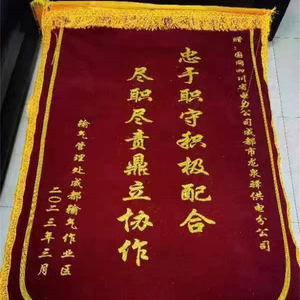 赠：国网四川省电力公司成都市龙泉驿供电分公司
忠于职守积极配合
尽职尽责鼎立协作
输气管理处成都输气作业区
二〇二三年三月